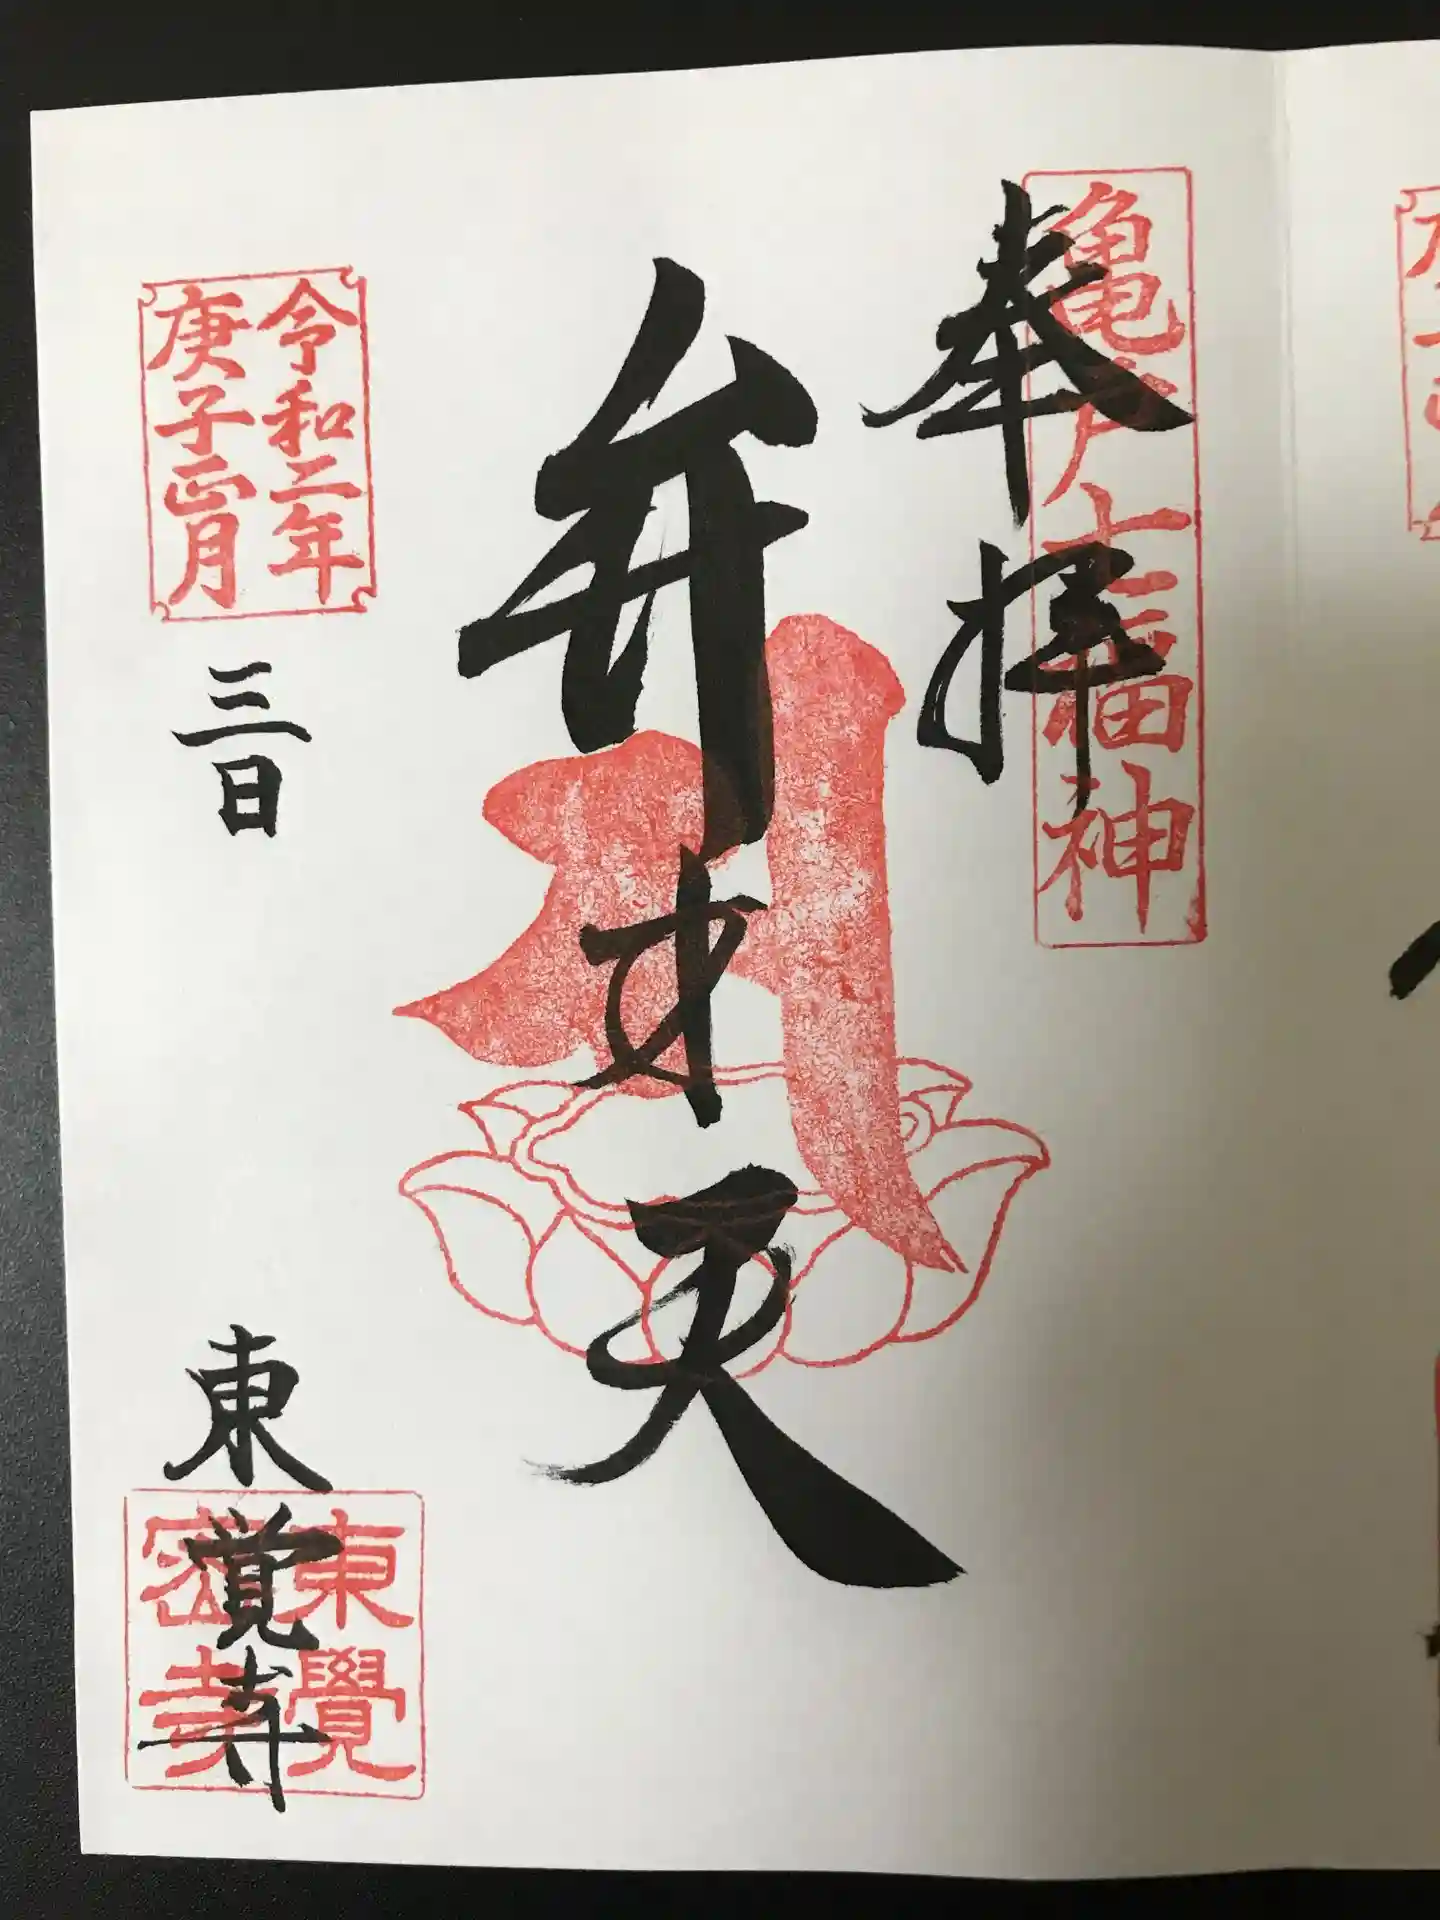 亀戸七福神
奉拝
弁才天
令和二年
庚子正月
三日
東覚寺
東覺